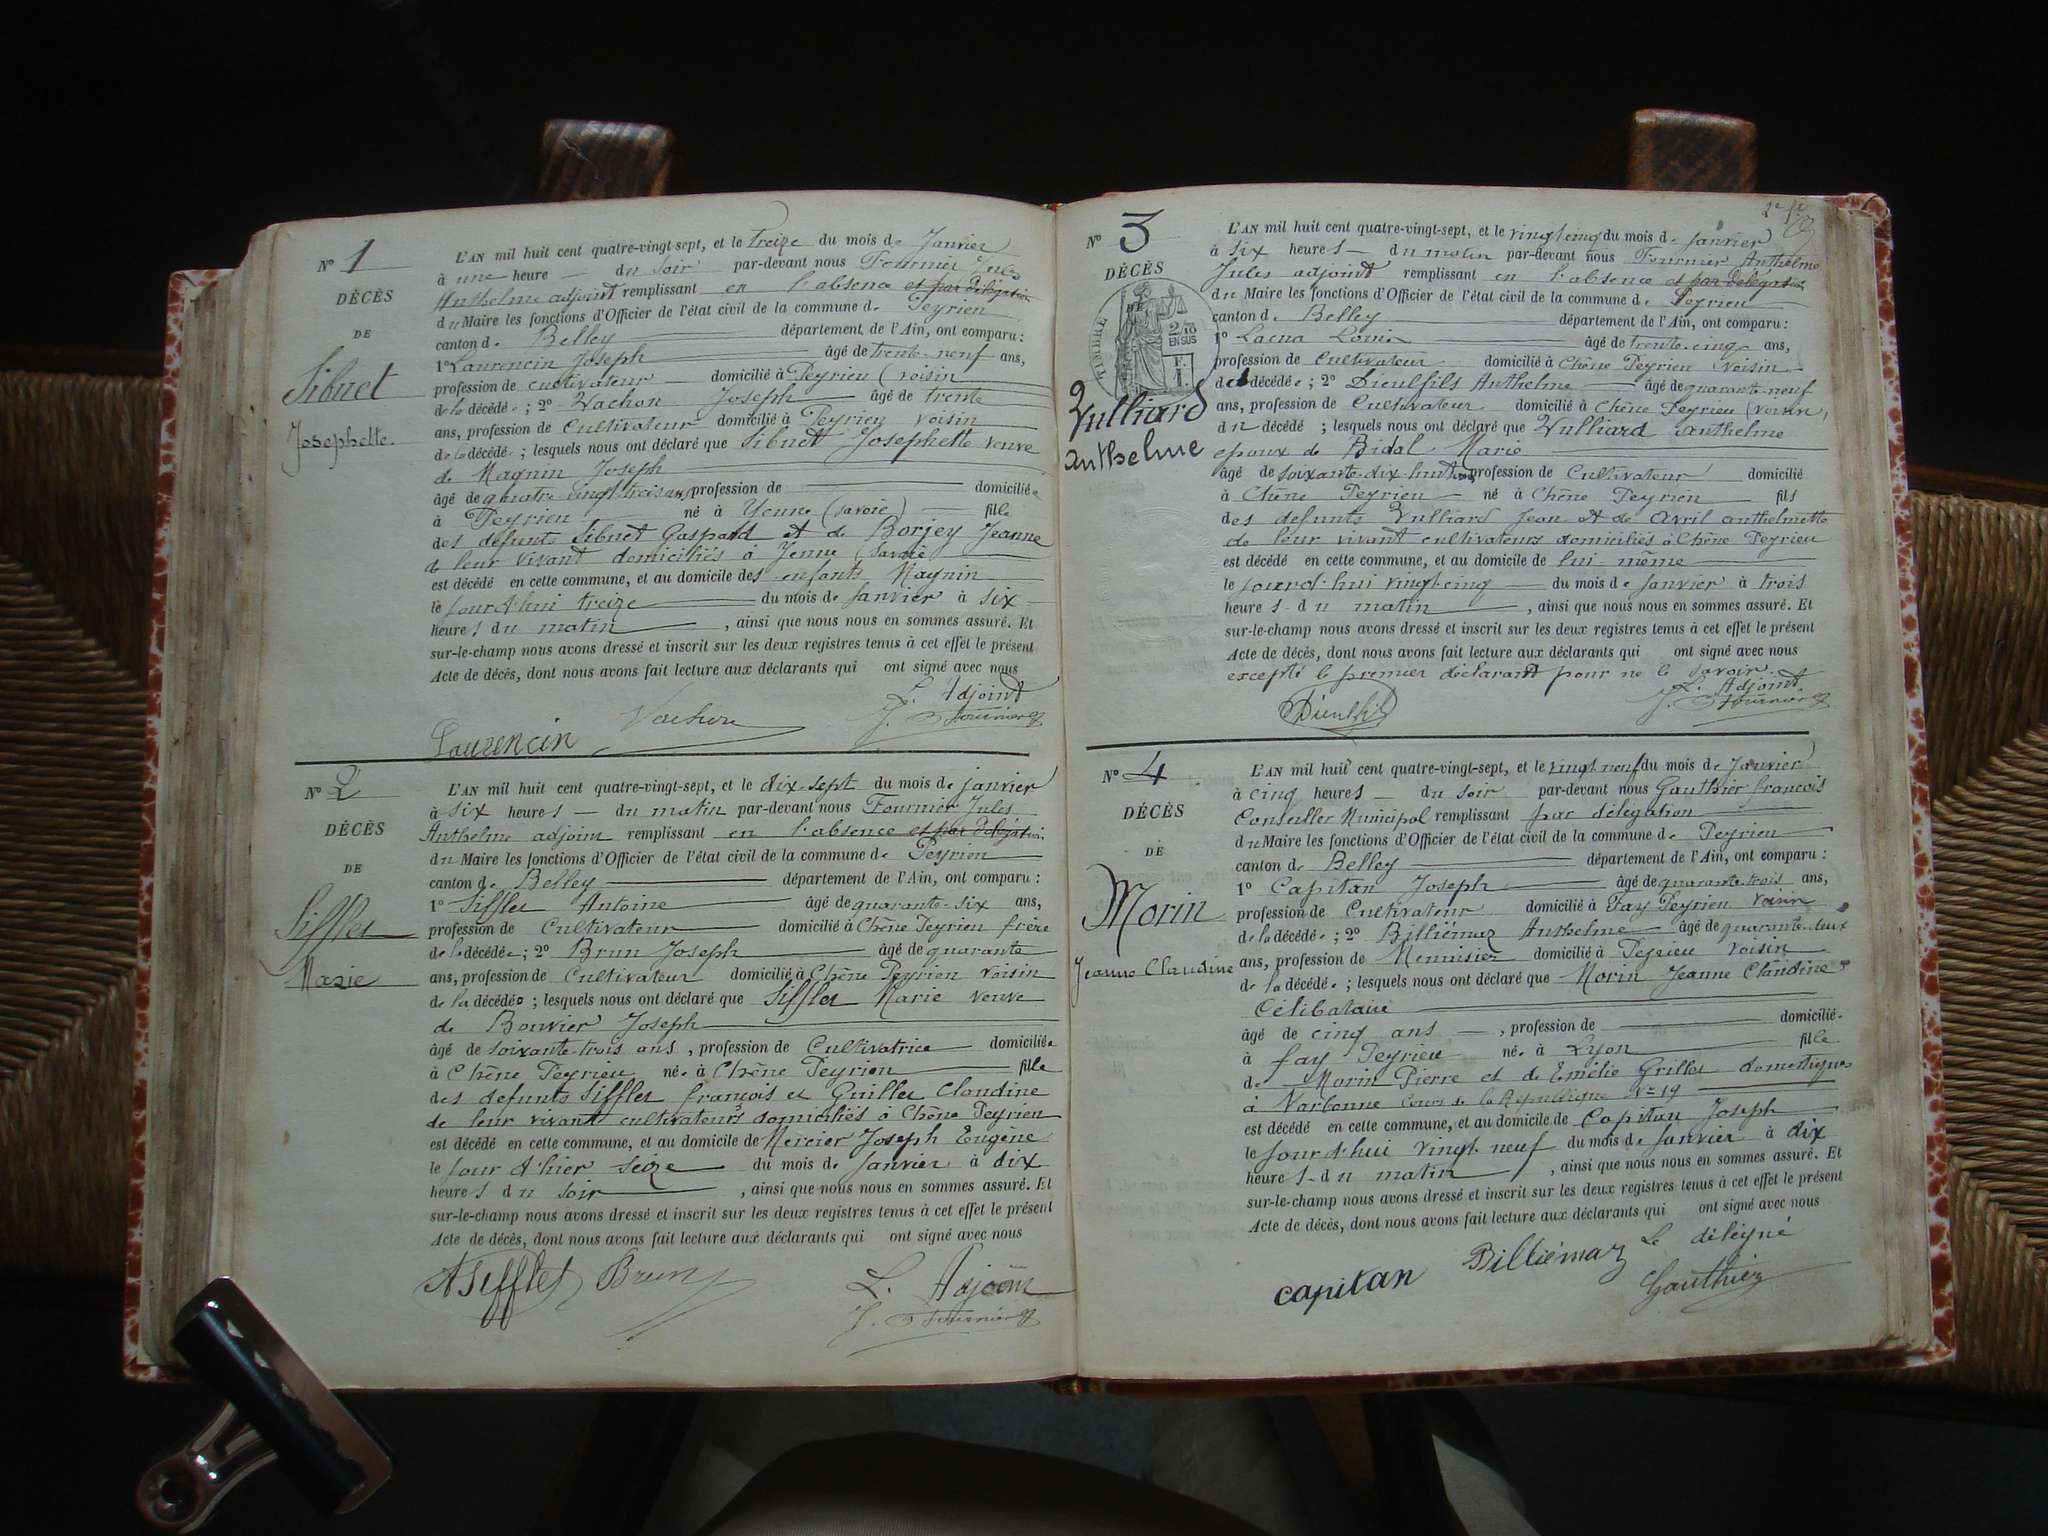 N° 1
DÉCÈS
DE
Sibuet
Josephette.
L'AN mil huit cent quatre-vingt-sept, et le treize du mois de Janvier
à une heure du soir par-devant nous Fournier Jules
Anthelme adjoint remplissant en l'absence et par délégation
du Maire les fonctions d'Officier de l'état civil de la commune de Peyrieu
canton de Belley département de l'Ain, ont comparu :
1° Laurencin Joseph âgé de trente-neuf ans,
profession de cultivateur domicilié à Peyrieu (voisin
de la décédée ; 2° Vachon Joseph âgé de trente
ans, profession de Cultivateur domicilié à Peyrieu voisin
de la décédée ; lesquels nous ont déclaré que Sibuet Josephette veuve
de Magnin Joseph
âgé de quatre vingt treis ans, profession de domiciliée
à Peyrieu né à Yenne (savoie) fille
des défunts Sibuet Gaspard et de Borjey Jeanne
de leur vivant domiciliés à Yenne (Savoie
est décédé en cette commune, et au domicile des enfants Magnin
le jourd'hui treize du mois de Janvier à six
heures du matin, ainsi que nous nous en sommes assuré. Et
sur-le-champ nous avons dressé et inscrit sur les deux registres tenus à cet effet le présent
Acte de décès, dont nous avons fait lecture aux déclarants qui ont signé avec nous
L. Adjoint
Laurencin Vachon J. Fournier
N° 2
DÉCÈS
DE
Sifflet
Marie
L'AN mil huit cent quatre-vingt-sept, et le dix-sept du mois de janvier
à six heures du matin par-devant nous Fournier Jules
Anthelme adjoint remplissant en l'absence et par délégation
du Maire les fonctions d'Officier de l'état civil de la commune de Peyrieu
canton de Belley département de l'Ain, ont comparu :
1° Sifflet Antoine âgé de quarante-six ans,
profession de Cultivateur domicilié à Chêne Peyrieu frère
de la décédée ; 2° Brun Joseph âgé de quarante
ans, profession de Cultivateur domicilié à Chêne Peyrieu Voisin
de la décédée ; lesquels nous ont déclaré que Sifflet Marie veuve
de Bouvier Joseph
âgé de soixante-trois ans, profession de Cultivatrice domiciliée
à Chêne Peyrieu née à Chêne Peyrieu fille
des defunts Sifflet françois et Guillet Claudine
de leur vivant cultivateurs domiciliés à Chêne Peyrieu
est décédé en cette commune, et au domicile de Mercier Joseph Eugène
le jour d'hier seize du mois de Janvier à dix
heures du soir, ainsi que nous nous en sommes assuré. Et
sur-le-champ nous avons dressé et inscrit sur les deux registres tenus à cet effet le présent
Acte de décès, dont nous avons fait lecture aux déclarants qui ont signé avec nous
A Sifflet Brun L. Adjoint
J. Fournier
N° 3
DÉCÈS
DE
TIMBRE
2/10
EN SUS
Vulliard
anthelme
L'AN mil huit cent quatre-vingt-sept, et le vingt cinq du mois de janvier
à six heures du matin par-devant nous Fournier Anthelme
Jules adjoint remplissant en l'absence et par délégation
du Maire les fonctions d'Officier de l'état civil de la commune de Peyrieu
canton de Belley département de l'Ain, ont comparu :
1° Lacna Louis âgé de trente-cinq ans,
profession de Cultivateur domicilié à Chêne Peyrieu voisin
du décédé ; 2° Dieulfils Anthelme âgé de quarante-neuf
ans, profession de Cultivateur domicilié à Chêne Peyrieu (voisin)
du décédé ; lesquels nous ont déclaré que Vulliard anthelme
epoux de Bidal Marie
âgé de soixante-dix-huit ans, profession de Cultivateur domicilié
à Chêne Peyrieu né à Chêne Peyrieu fils
des défunts Vulliard Jean et de Avril anthelmette
de leur vivant cultivateurs domiciliés à Chêne Peyrieu
est décédé en cette commune, et au domicile de lui-même
le jourd'hui vingt-cinq du mois de Janvier à trois
heures du matin, ainsi que nous nous en sommes assuré. Et
sur-le-champ nous avons dressé et inscrit sur les deux registres tenus à cet effet le présent
Acte de décès, dont nous avons fait lecture aux déclarants qui ont signé avec nous
excepté le premier déclarant pour ne le savoir.
L. Adjoint
Dieulfils J. Fournier
N° 4
DÉCÈS
DE
Morin
Jeanne Claudine
L'AN mil huit cent quatre-vingt-sept, et le vingt neuf du mois de Janvier
à cinq heures du soir par-devant nous Gauthier françois
Conseiller Municipal remplissant par délégation
du Maire les fonctions d'Officier de l'état civil de la commune de Peyrieu
canton de Belley département de l'Ain, ont comparu :
1° Capitan Joseph âgé de quarante-trois ans,
profession de Cultivateur domicilié à Fay Peyrieu voisin
de la décédée ; 2° Billiémaz Anthelme âgé de quarante-deux
ans, profession de Menuisier domicilié à Peyrieu Voisin
de la décédée ; lesquels nous ont déclaré que Morin Jeanne Claudine
Célibataire
âgé de cinq ans, profession de domiciliée
à fay Peyrieu née à Lyon fille
de Morin Pierre et de Emélie Grillet domestiques
à Narbonne Cours de la République N° 19
est décédé en cette commune, et au domicile de Capitan Joseph
le jourd'hui vingt neuf du mois de Janvier à dix
heures du matin, ainsi que nous nous en sommes assuré. Et
sur-le-champ nous avons dressé et inscrit sur les deux registres tenus à cet effet le présent
Acte de décès, dont nous avons fait lecture aux déclarants qui ont signé avec nous
capitan Billiémaz Le délégué
Gauthier